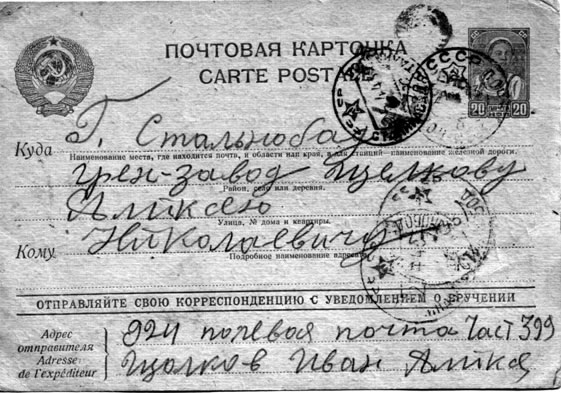 ПОЧТОВАЯ КАРТОЧКА
CARTE POSTALE
20 20
Куда Г. Сталинобад
Наименование места, где находится почта, и области или края, а для станций – наименование железной дороги.
Грен-завод Щелкову
Район, село или деревня.
Алексею
Улица, № дома и квартиры.
Кому Николаевичу
Подробное наименование адресата
ОТПРАВЛЯЙТЕ СВОЮ КОРРЕСПОНДЕНЦИЮ С УВЕДОМЛЕНИЕМ О ВРУЧЕНИИ
Адрес отправителя
Adresse de l'expéditeur
924 полевая почта Част 399
Щолков Иван Аликс